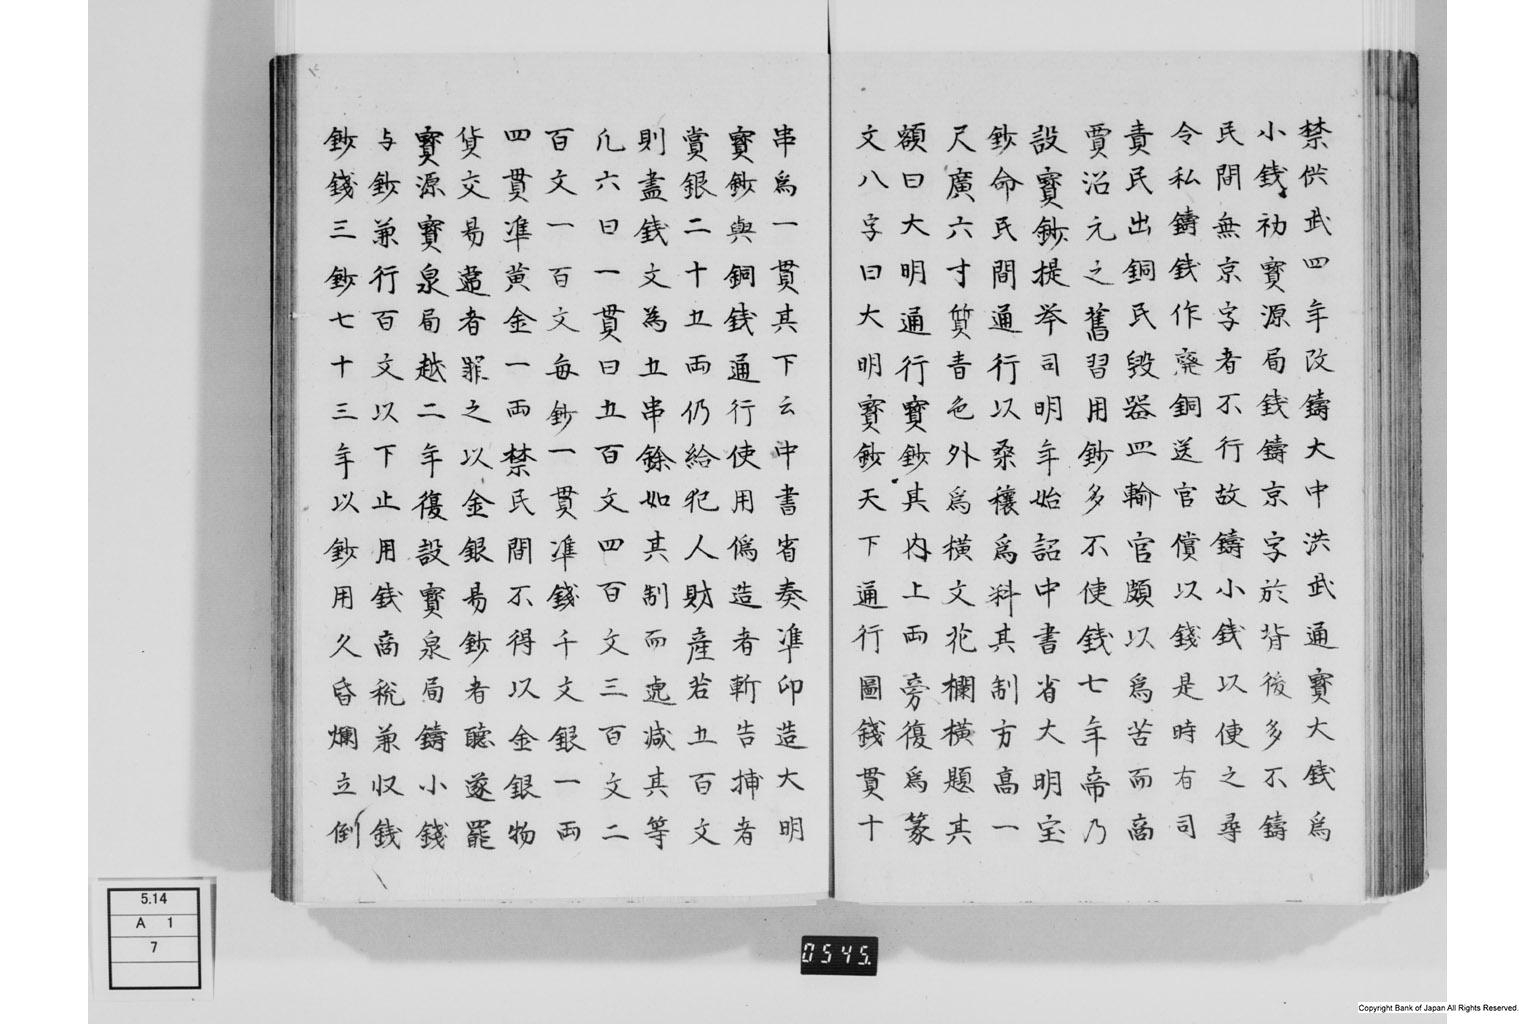 禁供武四年改鑄大中洪武通寳大銭爲
小銭初寳源局銭鑄京字於背後多不鑄
民間無京字者不行故鑄小銭以使之尋
令私鑄銭作廃銅送官償以錢是時有司
責民出銅民毀器皿輸官頗以爲苦而商
賈沿元之舊習用鈔多不使銭七年帝乃
設寳鈔提挙司明年始詔中書省大明宝
鈔命民間通行以桑穰爲料其制方高一
尺廣六寸質青色外爲横文花欄横題其
額曰大明通行寳鈔其内上両旁復爲篆
文八字曰大明寳鈔天下通行圖錢貫十
串爲一貫其下云中書省奏準印造大明
寳鈔與銅銭通行使用僞造者斬告捕者
賞銀二十五両仍給犯人財産若五百文
則畫銭文為五串餘如其制而逓减其等
凢六曰一貫曰五百文四百文三百文二
百文一百文毎鈔一貫準錢千文銀一両
四貫準黄金一両禁民間不得以金銀物
貨交易違者罪之以金銀易鈔者聴遂罷
寳源寳泉局越二年復設寳泉局鑄小錢
与鈔兼行百文以下止用銭商税兼収銭
鈔錢三鈔七十三年以鈔用久昏爛立倒
5.14
A 1
7
0545.
Copyright Bank of Japan All Rights Reserved.